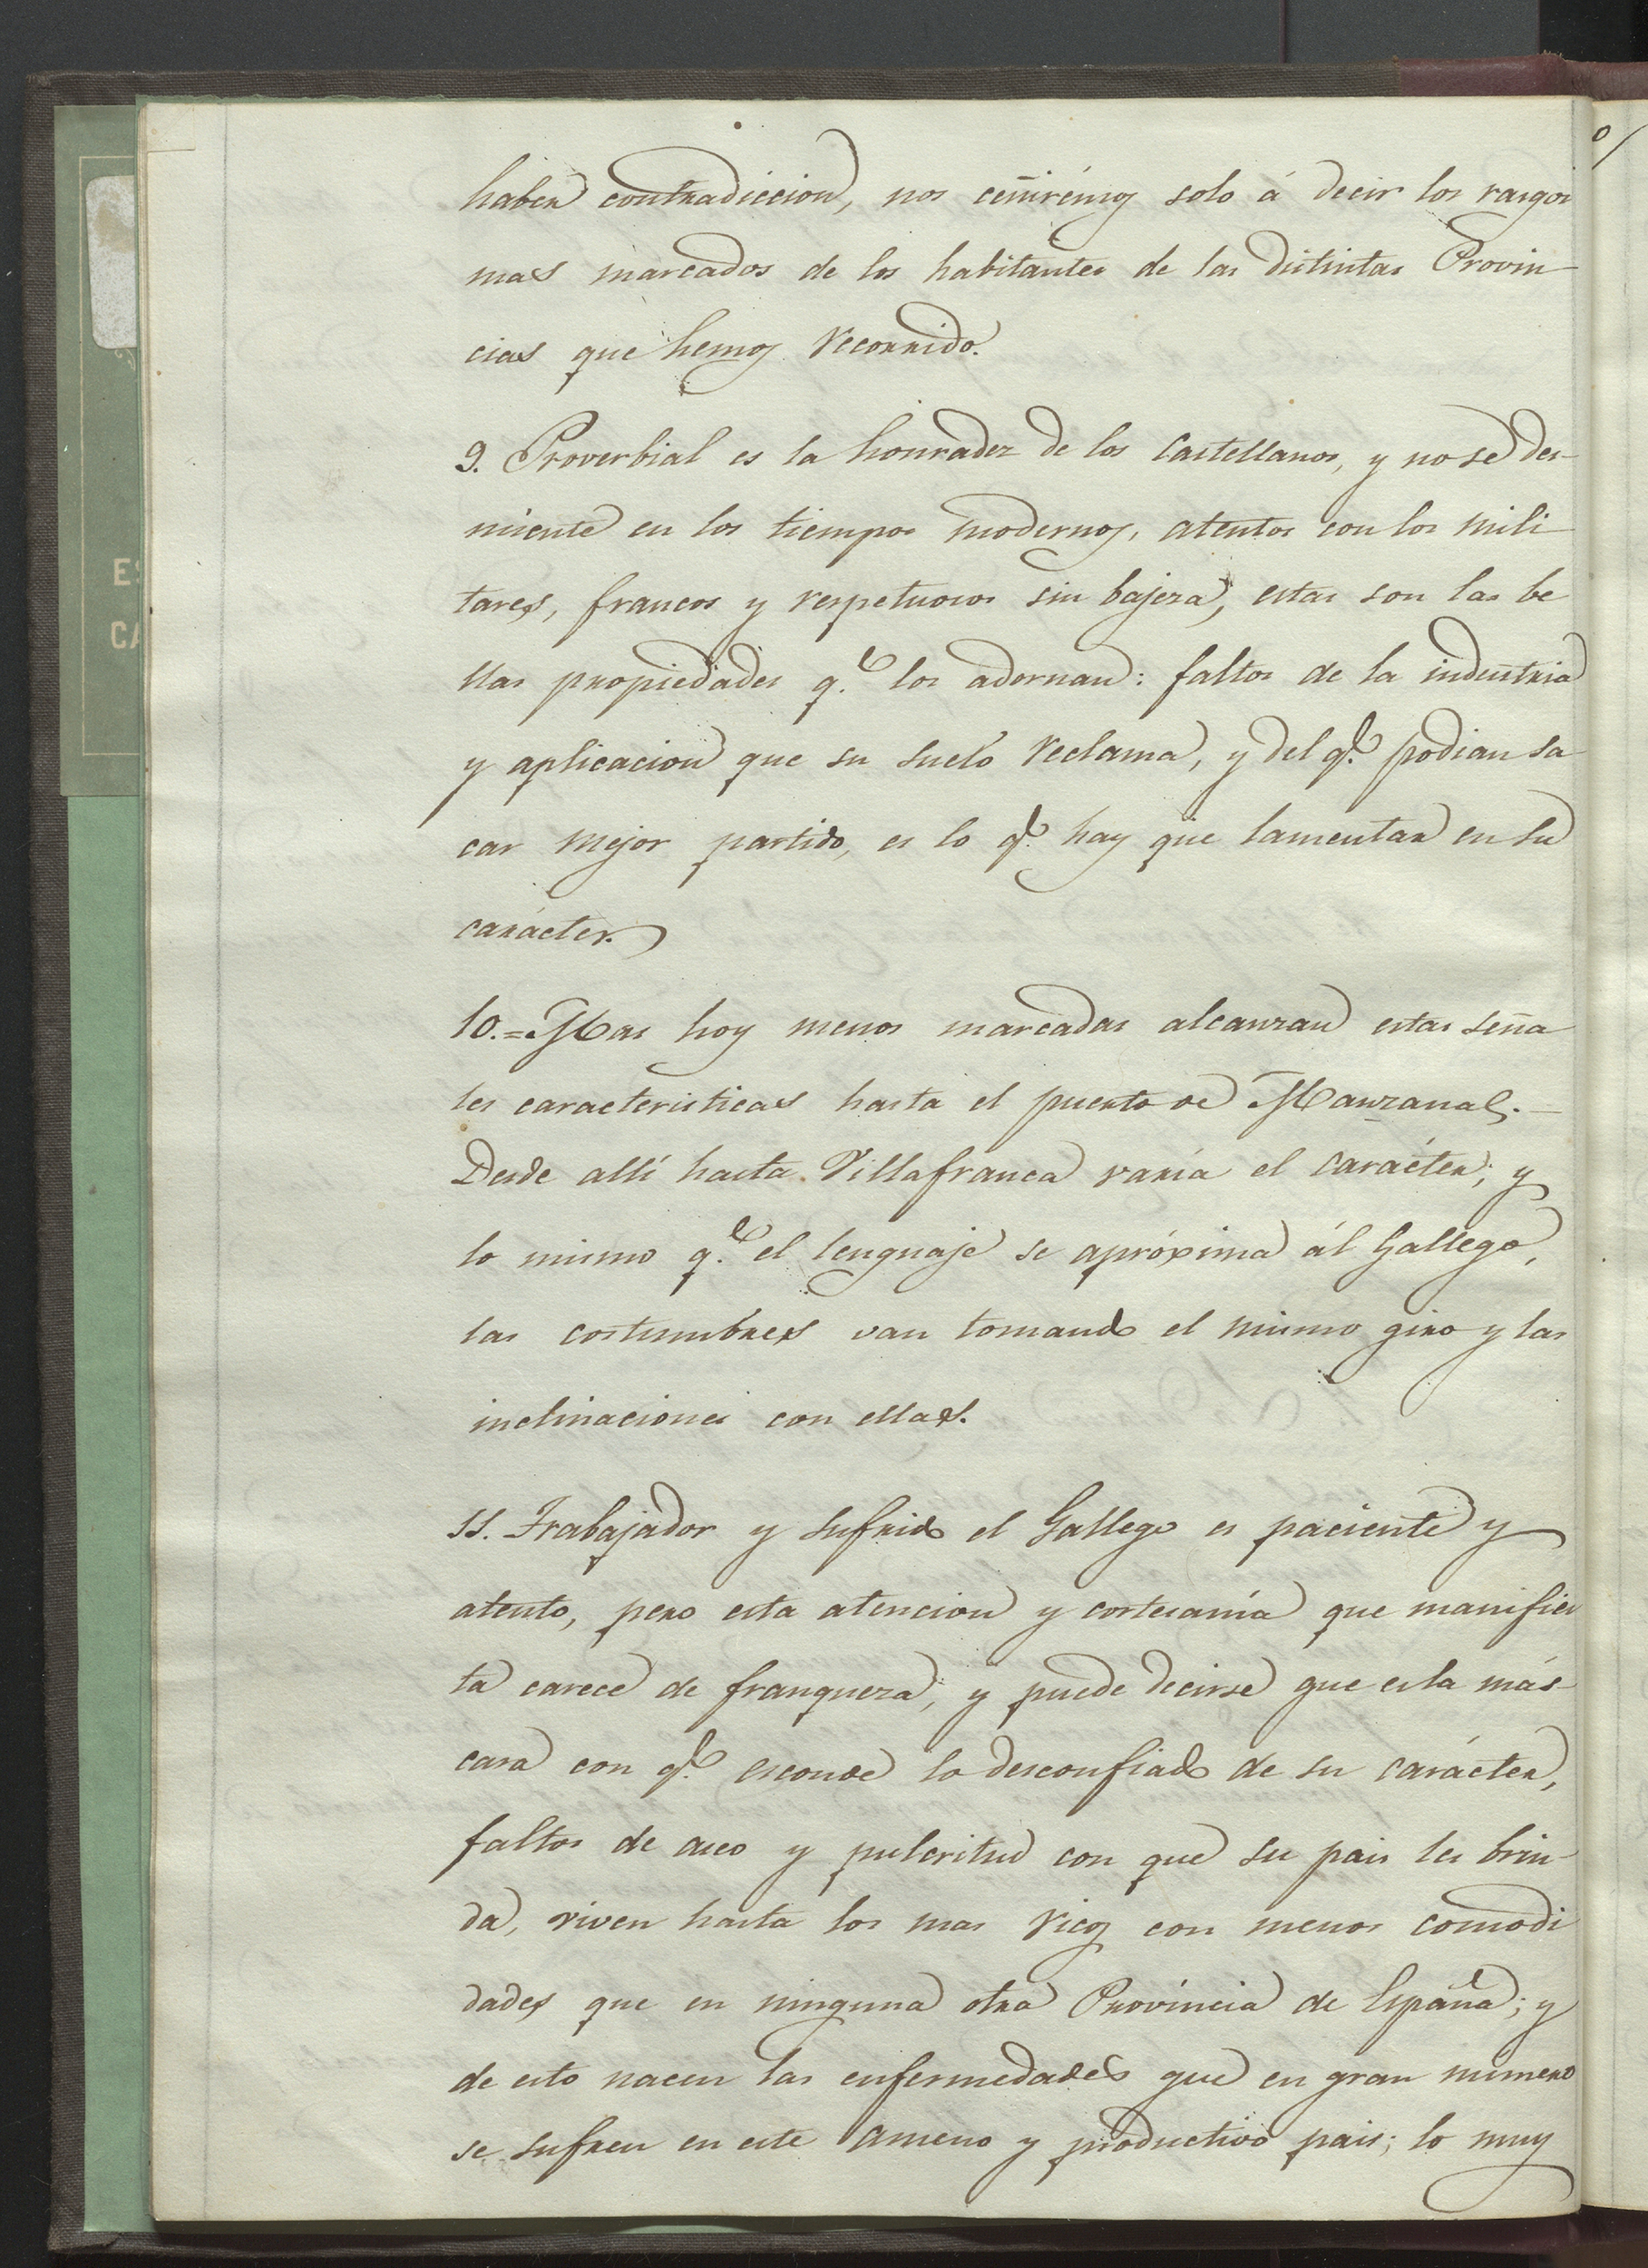 haber contradiccion, nos ceñirémos solo á decir los rasgos
mas marcados de los habitantes de las distintas Provin-
cias que hemos recorrido.
9. Proverbial es la honradez de los Castellanos, y no se des-
miente en los tiempos modernos, atentos con los mili
tares, francos y respetuosos sin bajeza, estas son las be
llas propiedades q.e los adornan: faltos de la industria
y aplicacion que su suelo reclama, y del q.e podian sa
car mejor partido, es lo q.e hay que lamentar en su
carácter.
10.= Mas hoy menos marcadas alcanzan estas seña
les caracteristicas hasta el puerto de Manzanal.-
Desde allí hasta Villafranca varía el carácter; y
lo mismo q.e el lenguaje se apróxima ál Gallego,
las costumbres van tomando el mismo giro y las
inclinaciones con ellas.
11. Trabajador y sufrido el Gallego es paciente y
atento, pero esta atencion y cortesanía que manifies
ta carece de franqueza, y puede decirse que es la más-
cara con q.e esconde lo desconfiado de su carácter,
faltos de aseo y pulcritud con que su pais les brin-
da, viven hasta los mas ricos con menos comodi
dades que en ninguna otra Provincia de España; y
de esto nacen las enfermedades que en gran número
se sufren en este ameno y productivo pais; lo muy
ES
CA